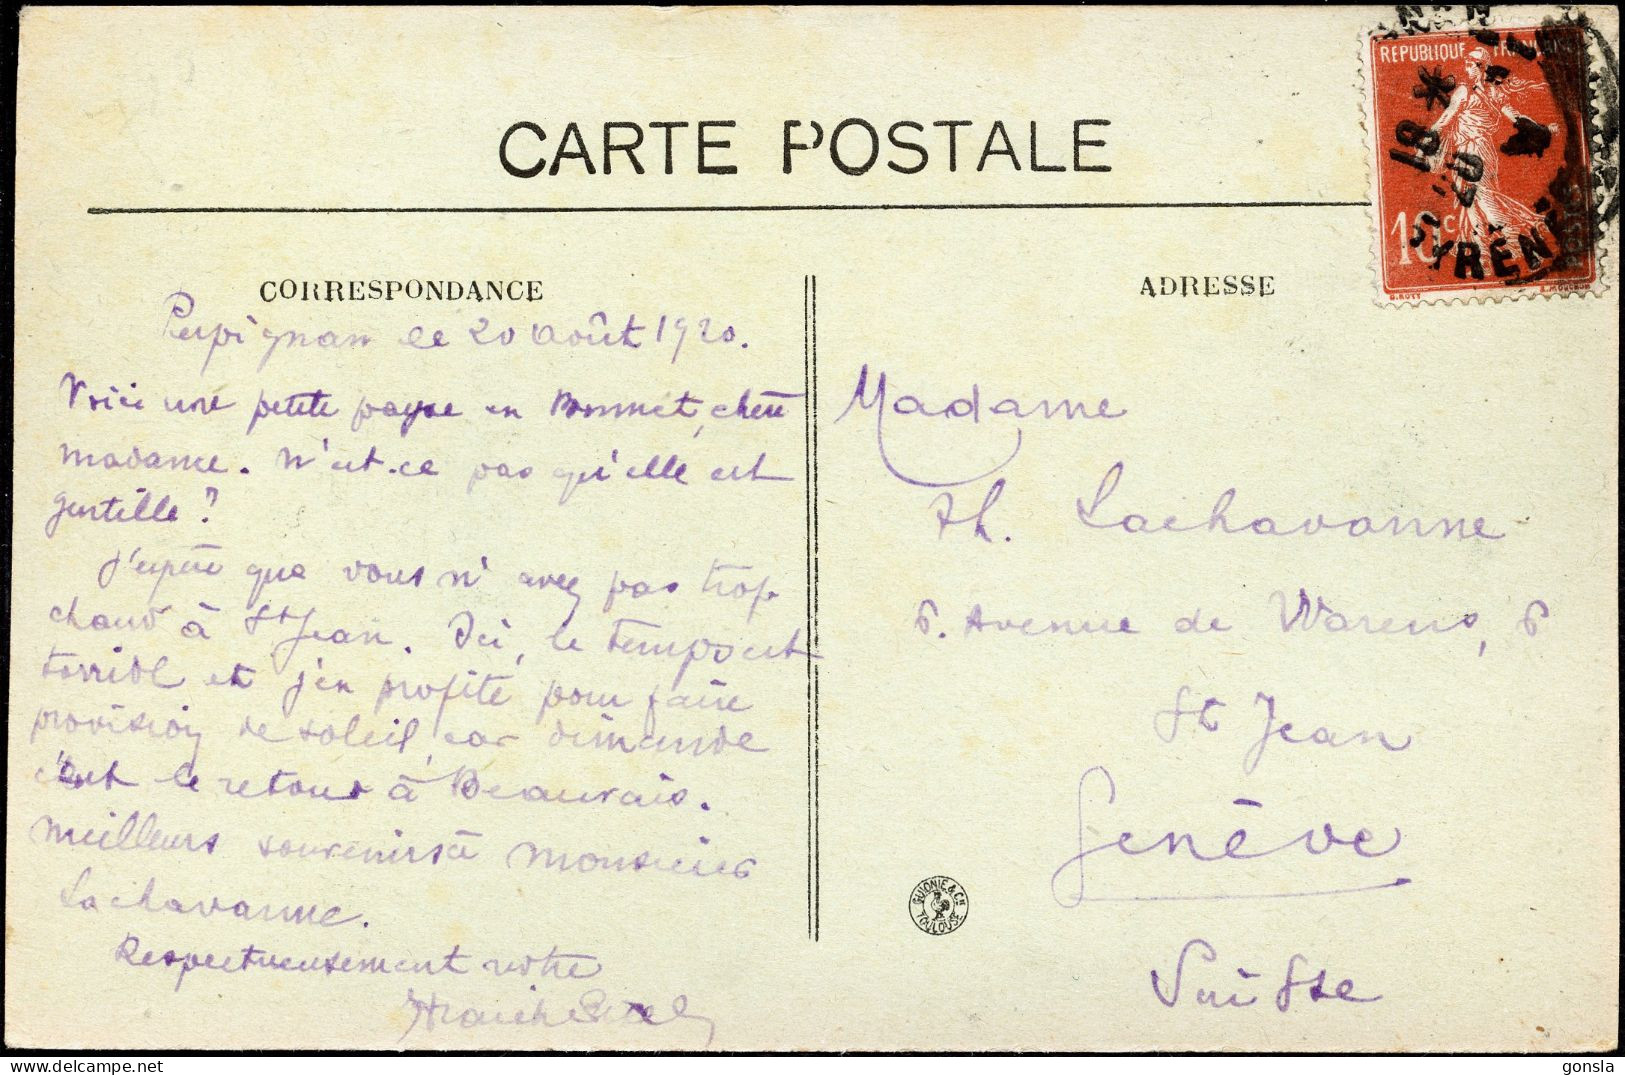 CARTE POSTALE
REPUBLIQUE FRANÇAISE
18 *
20
10c
POSTES
PYRÉNÉES
O.ROTY
E.MOUCHON
CORRESPONDANCE
Perpignan le 20 Août 1920.
Voici une petite payse en Bonnet, chère
madame. N'est-ce pas qu'elle est
gentille ?
J'espère que vous n'avez pas trop
chaud à St Jean. Ici, le temps est
torride et j'en profite pour faire
provision de soleil, car dimande
c'est le retour à Beauvais.
Meilleurs souvenirs à Monsieur
Lachavanne.
Respectueusement votre
ADRESSE
Madame
Th. Lachavanne
6. Avenue de Warens, 6
St Jean
Genève
Suisse
GUIONIE & Cie
TOULOUSE
https://www.delcampe.net
gonsla